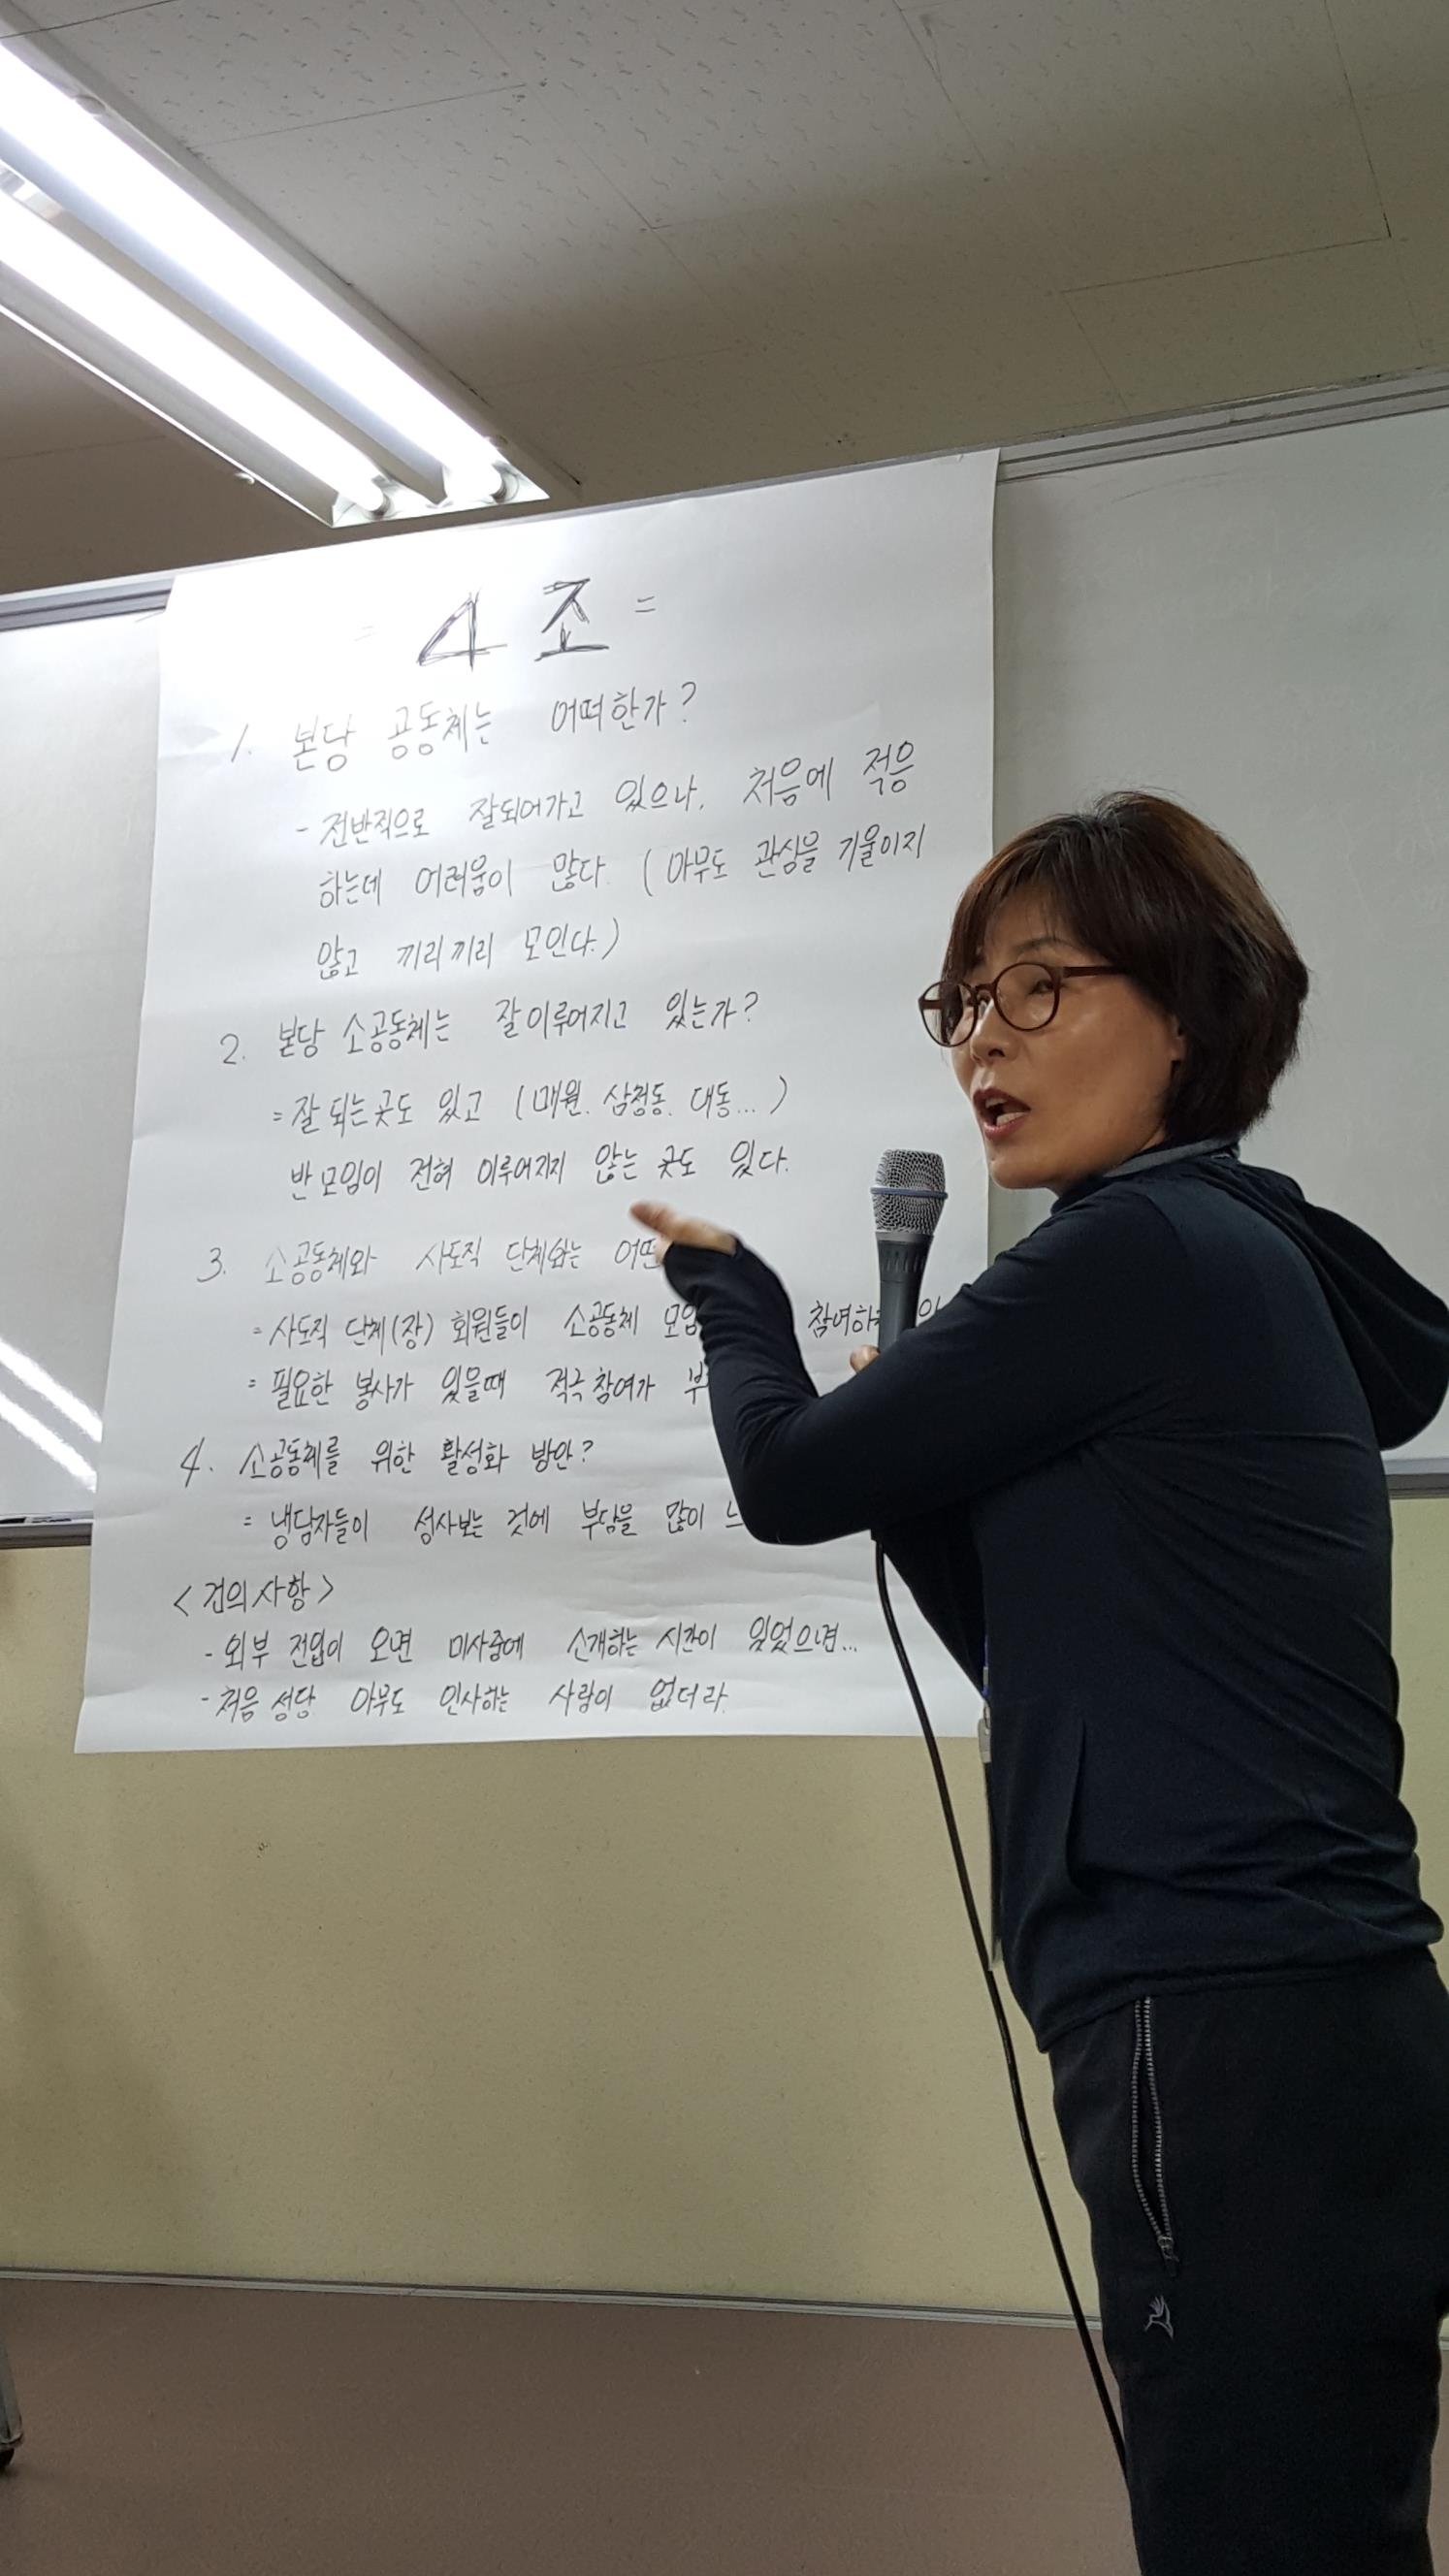 = 4 조 =
1. 본당 공동체는 어떠한가?
- 전반적으로 잘되어가고 있으나, 처음에 적응
하는데 어려움이 많다. (아무도 관심을 기울이지
않고 끼리끼리 모인다.)
2. 본당 소공동체는 잘 이루어지고 있는가?
= 잘 되는곳도 있고 (매원. 삼정동. 대동...)
반모임이 전혀 이루어지지 않는 곳도 있다.
3. 소공동체와 사도직 단체와는
= 사도직 단체(장) 회원들이 소공동체
= 필요한 봉사가 있을때 적극참여가
4. 소공동체를 위한 활성화 방안?
= 냉담자들이 성사보는 것에 부담을 많이
<건의사항>
- 외부 전입이 오면 미사중에 소개하는 시간이 있었으면...
- 처음 성당 아무도 인사하는 사람이 없더라.